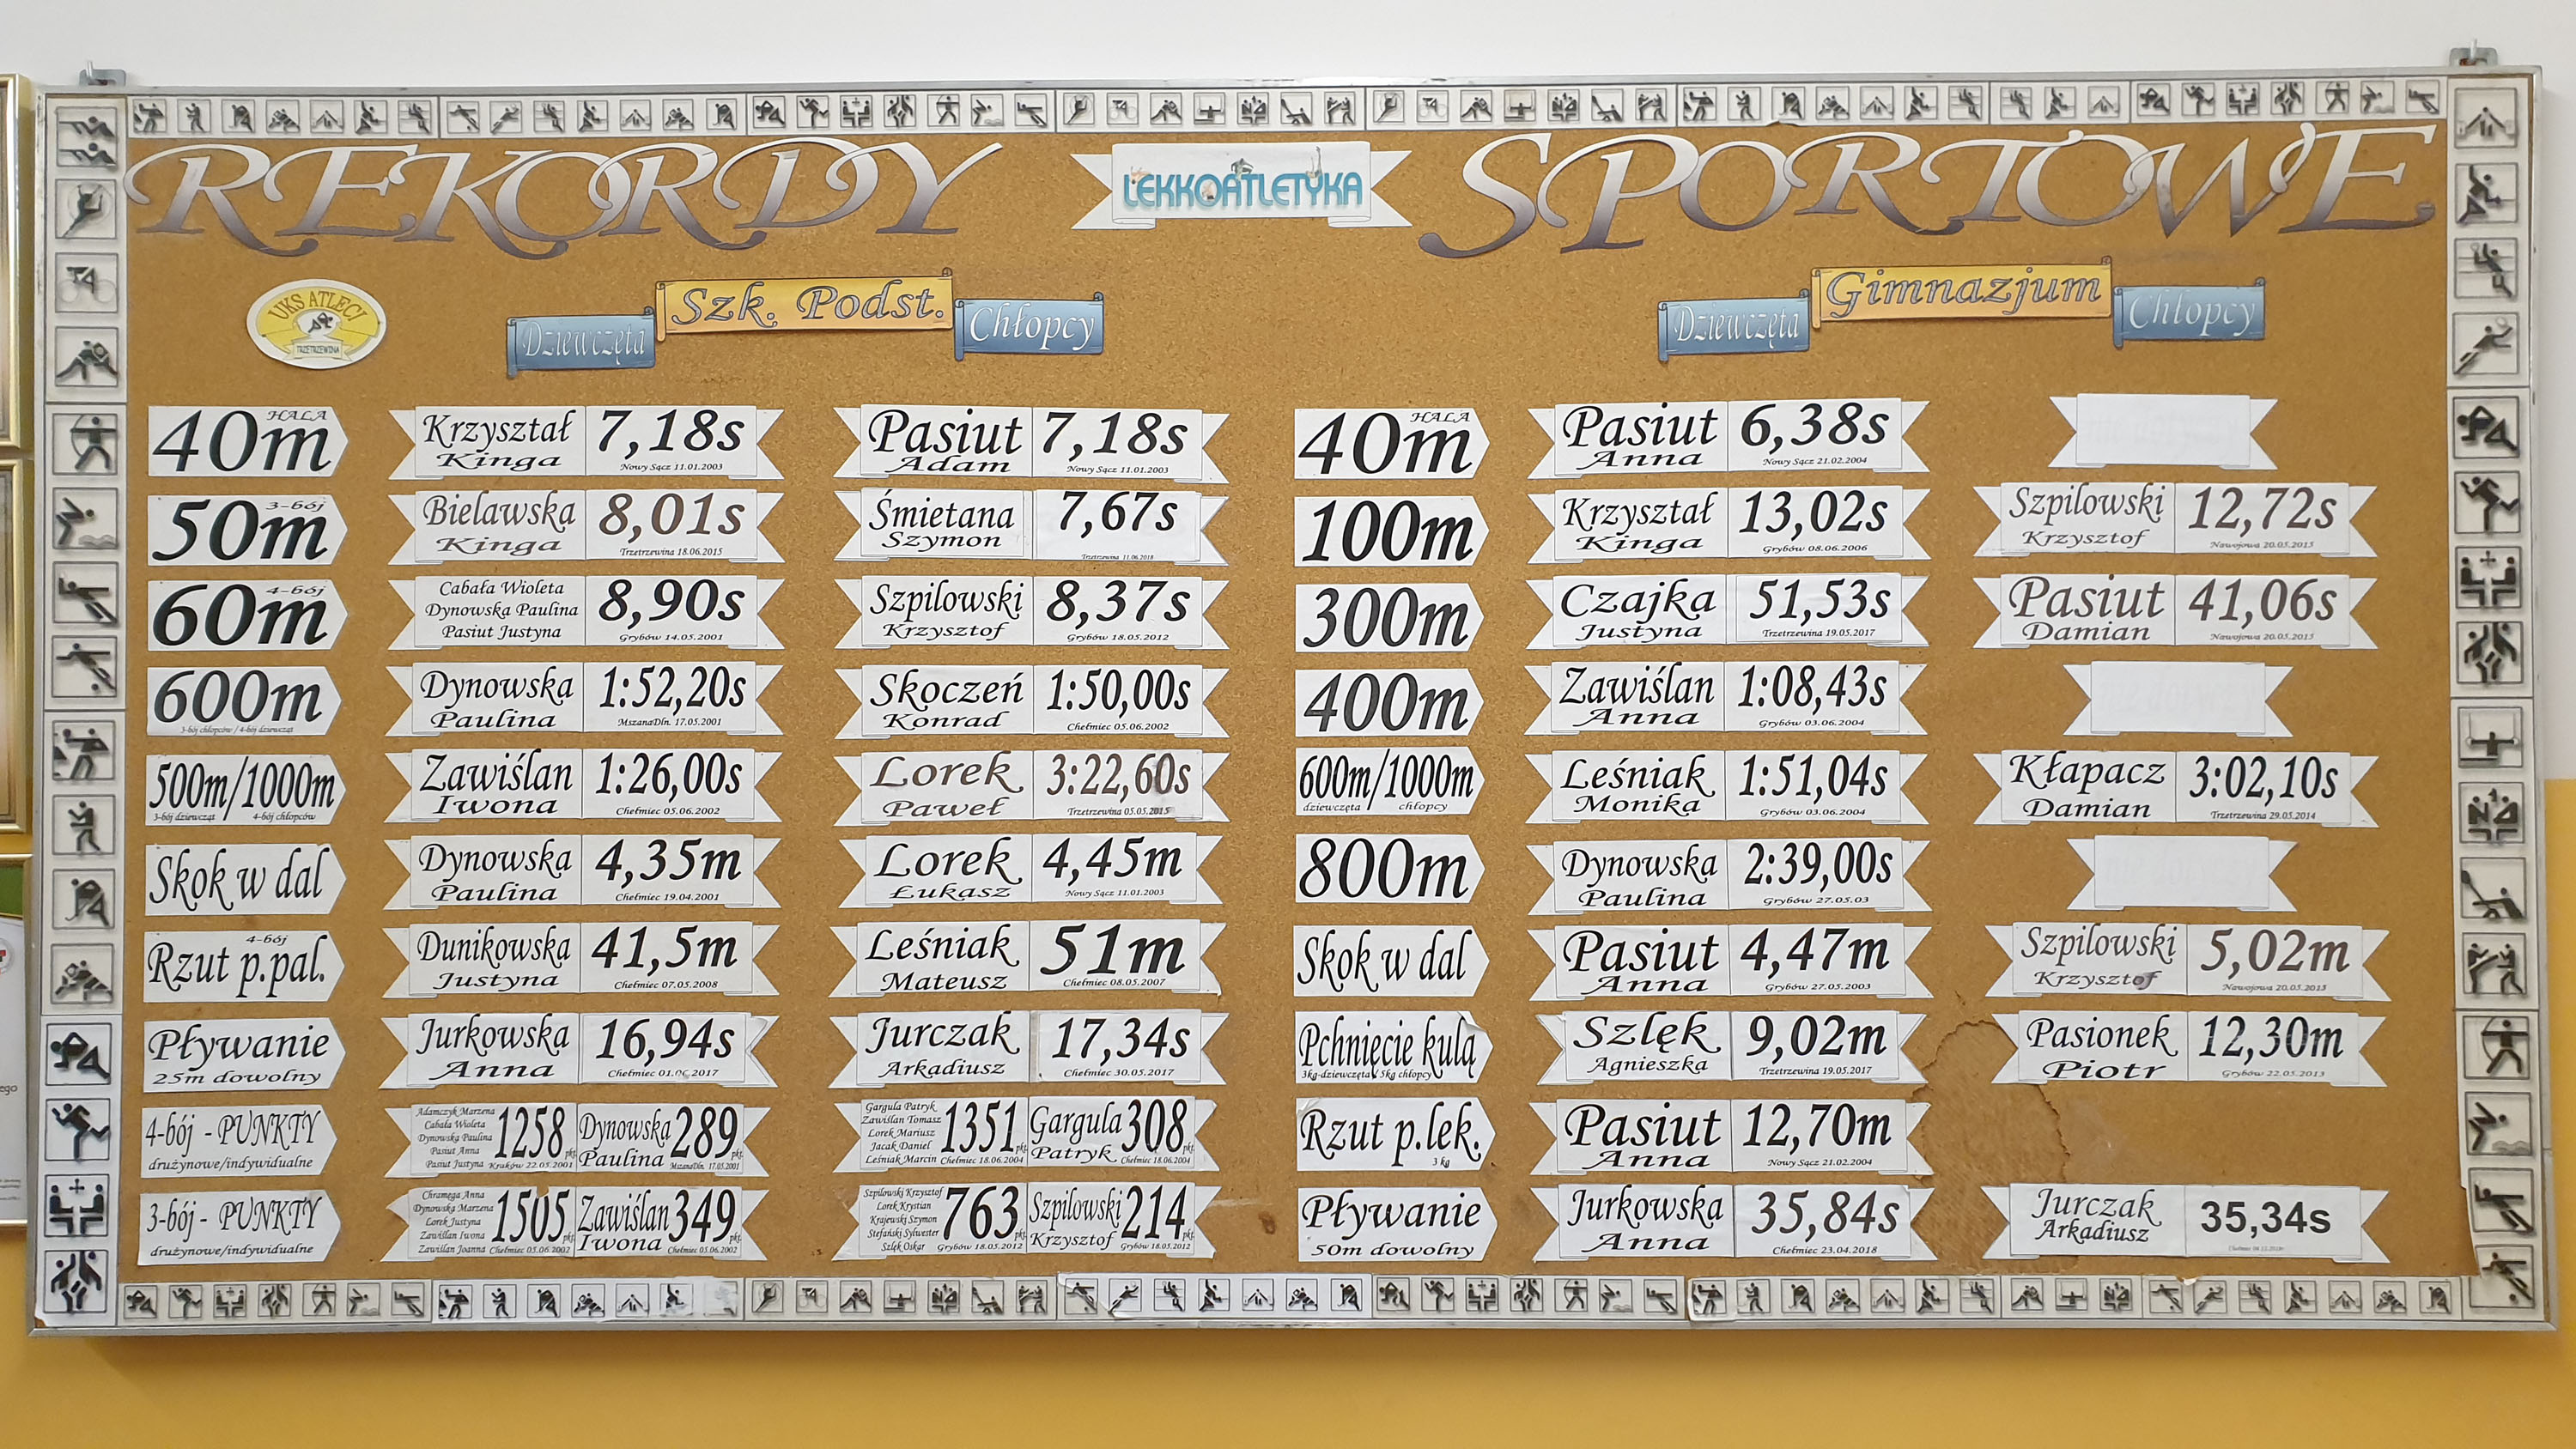 REKORDY LEKKOATLETYKA SPORTOWE
UKS ATLECI
TRZETRZEWINA
Dziewczęta Szk. Podst. Chłopcy
Dziewczęta Gimnazjum Chłopcy
40m HALA
Krzyształ Kinga 7,18s Nowy Sącz 11.01.2003
Pasiut Adam 7,18s Nowy Sącz 11.01.2003
50m 3-bój
Bielawska Kinga 8,01s Trzetrzewina 18.06.2015
Śmietana Szymon 7,67s Trzetrzewina 11.06.2018
60m 4-bój
Cabała Wioleta
Dynowska Paulina
Pasiut Justyna
8,90s Grybów 14.05.2001
Szpilowski Krzysztof 8,37s Grybów 18.05.2012
600m
3-bój chłopców / 4-bój dziewcząt
Dynowska Paulina 1:52,20s MszanaDln. 17.05.2001
Skoczeń Konrad 1:50,00s Chełmiec 05.06.2002
500m/1000m
3-bój dziewcząt 4-bój chłopców
Zawiślan Iwona 1:26,00s Chełmiec 05.06.2002
Lorek Paweł 3:22,60s Trzetrzewina 05.05.2015
Skok w dal
Dynowska Paulina 4,35m Chełmiec 19.04.2001
Lorek Łukasz 4,45m Nowy Sącz 11.01.2003
4-bój
Rzut p.pal.
Dunikowska Justyna 41,5m Chełmiec 07.05.2008
Leśniak Mateusz 51m Chełmiec 08.05.2007
Pływanie
25m dowolny
Jurkowska Anna 16,94s Chełmiec 2017
Jurczak Arkadiusz 17,34s Chełmiec 30.05.2017
4-bój - PUNKTY
drużynowe/indywidualne
Adamczyk Marzena
Cabała Wioleta
Dynowska Paulina
Pasiut Anna
Pasiut Justyna
1258 pkt. Kraków 22.05.2001
Dynowska Paulina 289 pkt. MszanaDln. 17.05.2001
Gargula Patryk
Zawiślan Tomasz
Lorek Mariusz
Jacak Daniel
Leśniak Marcin
1351 pkt. Chełmiec 18.06.2004
Gargula Patryk 308 pkt. Chełmiec 18.06.2004
3-bój - PUNKTY
drużynowe/indywidualne
Chramęga Anna
Dynowska Marzena
Lorek Justyna
Zawiślan Iwona
Zawiślan Joanna
1505 pkt. Chełmiec 05.06.2002
Zawiślan Iwona 349 pkt. Chełmiec 05.06.2002
Szpilowski Krzysztof
Lorek Krystian
Krajewski Szymon
Stefański Sylwester
Szlęk Oskar
763 pkt. Grybów 18.05.2012
Szpilowski Krzysztof 214 pkt. Grybów 18.05.2012
40m HALA
Pasiut Anna 6,38s Nowy Sącz 21.02.2004
100m
Krzyształ Kinga 13,02s Grybów 08.06.2006
Szpilowski Krzysztof 12,72s Nawojowa 20.05.2015
300m
Czajka Justyna 51,53s Trzetrzewina 19.05.2017
Pasiut Damian 41,06s Nawojowa 20.05.2015
400m
Zawiślan Anna 1:08,43s Grybów 03.06.2004
600m/1000m
dziewczęta chłopcy
Leśniak Monika 1:51,04s Grybów 03.06.2004
Kłapacz Damian 3:02,10s Trzetrzewina 29.05.2014
800m
Dynowska Paulina 2:39,00s Grybów 27.05.03
Skok w dal
Pasiut Anna 4,47m Grybów 27.05.2003
Szpilowski Krzysztof 5,02m Nawojowa 20.05.2015
Pchnięcie kulą
3kg-dziewczęta 5kg chłopcy
Szlęk Agnieszka 9,02m Trzetrzewina 19.05.2017
Pasionek Piotr 12,30m Grybów 22.05.2013
Rzut p.lek.
3 kg
Pasiut Anna 12,70m Nowy Sącz 21.02.2004
Pływanie
50m dowolny
Jurkowska Anna 35,84s Chełmiec 23.04.2018
Jurczak Arkadiusz 35,34s